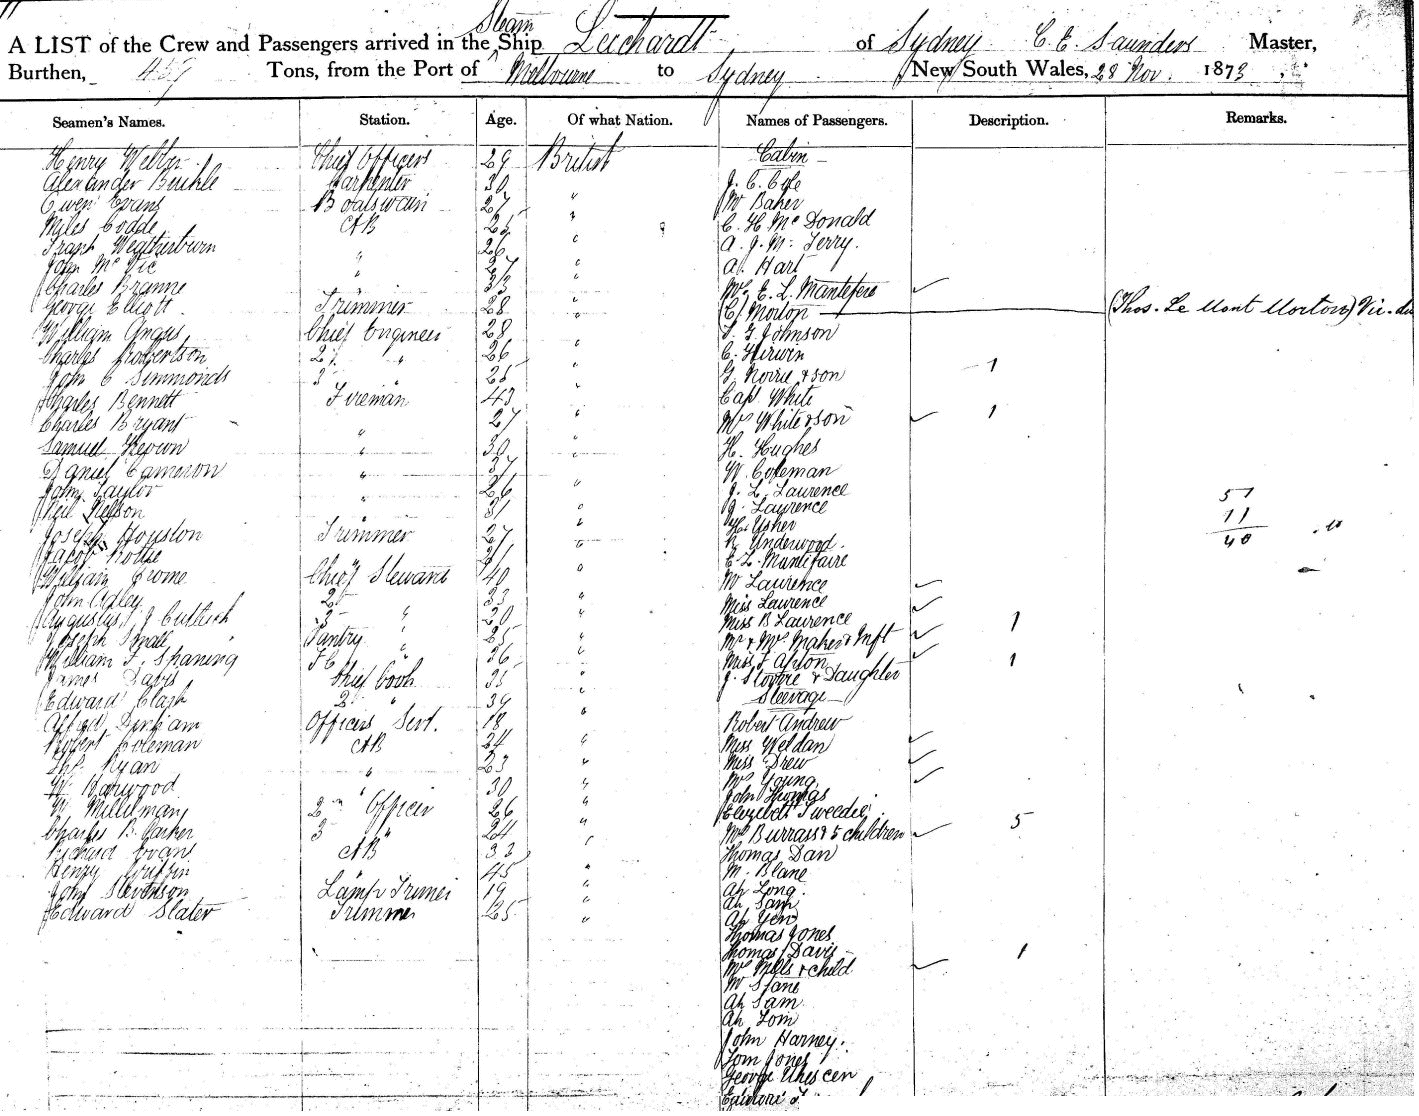 A LIST of the Crew and Passengers arrived in the Steam Ship Leichardt of Sydney C. E. Saunders Master,
Burthen, 457 Tons, from the Port of Melbourne to Sydney New South Wales, 28 Nov. 1873
Seamen's Names. Station. Age. Of what Nation. Names of Passengers. Description. Remarks.
Henry Chief Officers 29 British Cabin
Alexander Carpenter 30 " J. C. Cole
Owen Evans Boatswain 27 " Mr Baker
Miles Codde AB 25 " C. H. Mc Donald
Frank Weatherburn " 26 " A. J. M. Terry.
John Mc Vie " 27 " A. Hart
Charles Branne 33 " Mrs E. L. Mantefere
George Elliott Trimmer 28 " C. Morton (Thos. Le Mont Morton)
William Angus Chief Engineer 28 " T. G. Johnson
Charles Robertson 2 " 26 " C. Hirwin
John C Simmonds 3 " 25 " G. Norrie & son 1
Charles Bennett Fireman 43 " Cap White
Charles Bryant " 27 " Mrs White & son 1
Samuel " 30 " H. Hughes
Daniel Cameron " 37 " W. Coleman
John Taylor " 26 " J. L. Laurence 51
Neil Nelson " 31 " J. Laurence 11
Joseph Houston Trimmer 27 " H. Usher 40
Jacob " 21 " N Underwood.
William Crome Chief Steward 40 " E. L. Mantefaire
John 2 " 33 " Mr Laurence
Augustus J 3 " 20 " Miss Laurence
Joseph Small Pantry " 25 " Miss B Laurence 1
William F. Spaning 36 " Mr & Mrs Maher & Inft
James Davis Chief Cook 35 " Miss 1
Edward Clark 2 " 39 " J. & Daughter
Alfred Officers Servt. 18 " Steerage
Robert Coleman AB 24 " Robert Andrew
Thos Ryan " 23 " Miss Weldan
W. Harwood " 30 " Miss Drew
W. Milleman 2nd Officer 26 " Mrs Young
Charles B. Parker 3 " 24 " John Thomas
Richard Evans AB 32 " Elizabeth Tweedie
Henry Griffin 45 " Mrs Burrass & 5 children 5
John Stevenson Lamp Trimer 19 " Thomas Dan
Edward Slater Trimmer 25 " M. Blane
Ah Long.
Ah Sam
Ah Yen
Thomas Jones
Thomas Davis
Mrs Mills & child 1
Mr
Ah Sam
Ah Tom
John Harney.
Tom Jones
George